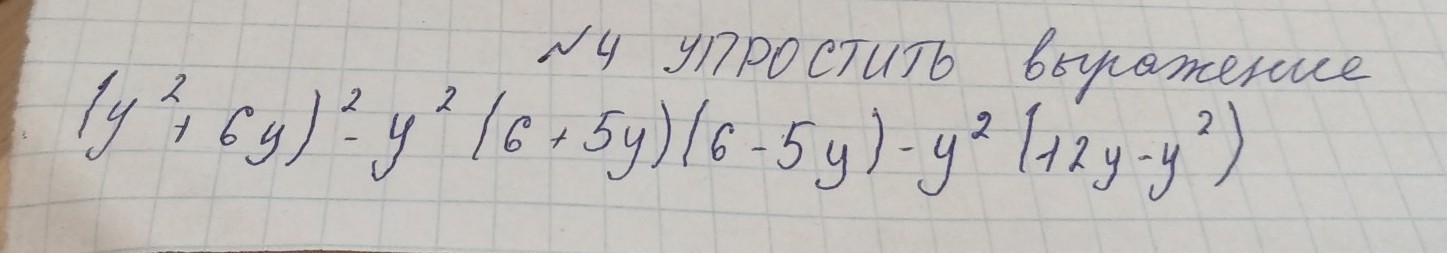 №4 УПРОСТИТЬ выражение
(y²+6y)²-y²(6+5y)(6-5y)-y²(12y-y²)